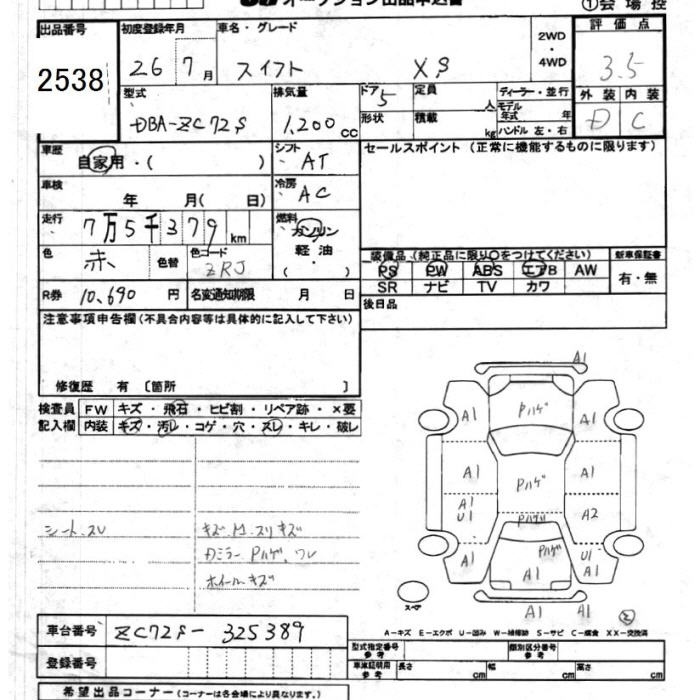 オークション出品申込書 ①会場控
出品番号 初度登録年月 車名・グレード 2WD・4WD 評価点
2538 26 7月 スイフト XS 3.5
型式 排気量 ドア 5 定員 人 ディーラー・並行 外装 内装
DBA-ZC72S 1,200cc 形状 積載 kg モデル年式 年 ハンドル 左・右 D C
車歴 自家用・( ) シフト AT セールスポイント (正常に機能するものに限ります)
車検 年 月( 日) 冷房 AC
走行 7万5千379km 燃料 ガソリン・軽油・( )
色 赤 色替 色コード ZRJ 装備品 (純正品に限り○をつけてください) 新車保証書
PS PW ABS エアB AW 有・無
SR ナビ TV カワ
R券 10,690円 名変通知期限 月 日 後日品
注意事項申告欄(不具合内容等は具体的に記入して下さい)
修復歴 有〔箇所 〕
検査員記入欄 FW キズ・飛石・ヒビ割・リペア跡・×要
内装 キズ・汚レ・コゲ・穴・スレ・キレ・破レ
シートスレ キズ、M、スリキズ
Dミラー Pハゲ、ワレ
ホイールキズ
A1
A1 Pハゲ A1
A1 Pハゲ A1
A1 U1 Pハゲ A2
A1 A1 Pハゲ U1 A1
A1 A1
スペア
A-キズ E-エクボ U-凹み W-補修跡 S-サビ C-腐食 XX-交換済
車台番号 ZC72S-325389
登録番号 型式指定番号 参考 類別区分番号 参考
車庫証明用 参考 長さ cm 幅 cm 高さ cm
希望出品コーナー(コーナーは各会場により異なります。)